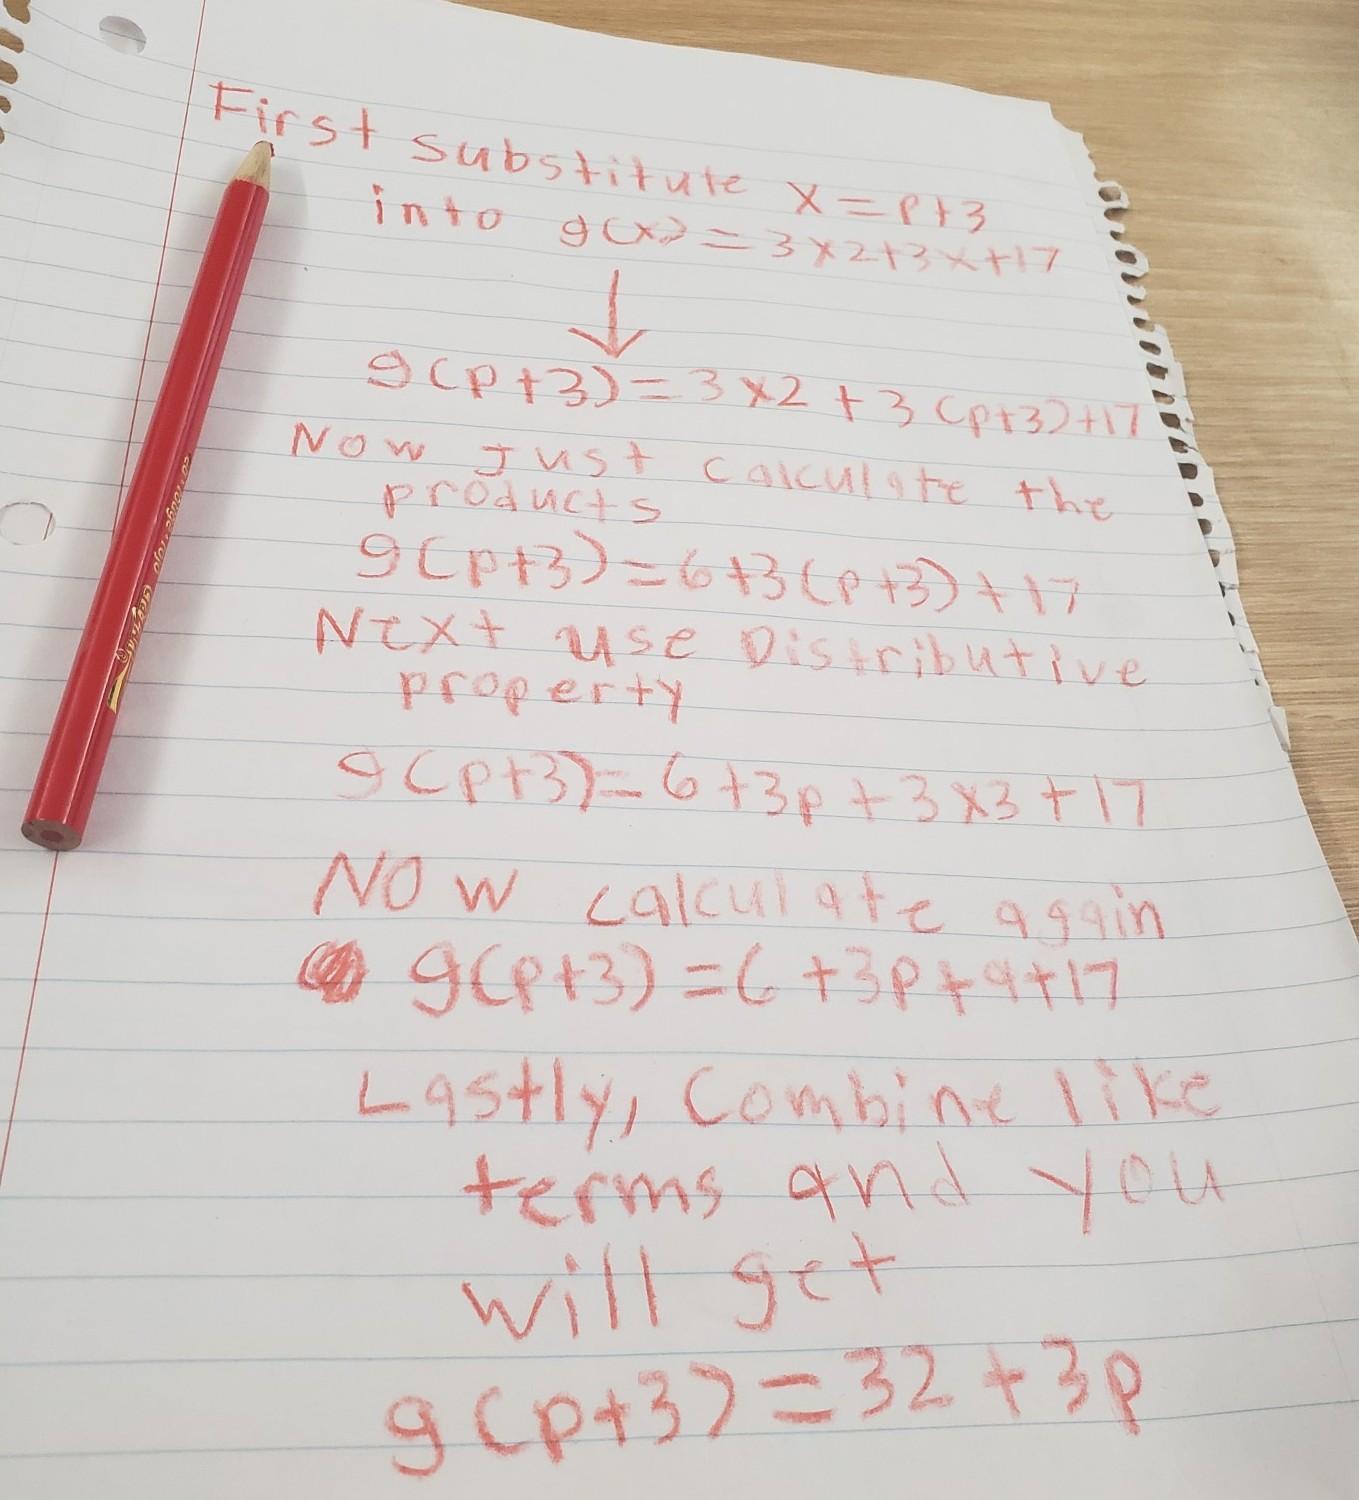 First substitute x = p+3
into g(x) = 3x2+3x+17
↓
g(p+3) = 3x2 + 3(p+3)+17
Now Just calculate the
products
g(p+3) = 6+3(p+3)+17
Next use Distributive
property
g(p+3) = 6+3p+3x3+17
Now calculate again
g(p+3) = 6+3p+9+17
Lastly, Combine like
terms and you
will get
g(p+3) = 32 + 3p